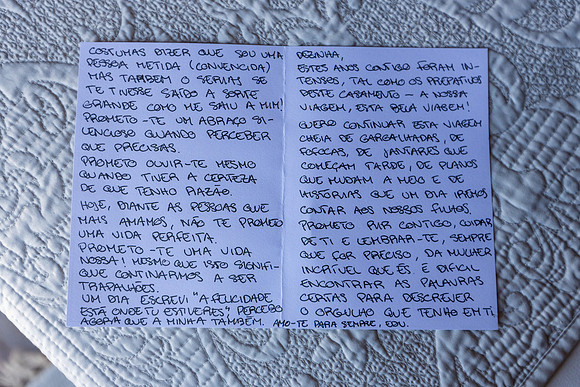 COSTUMAS DIZER QUE SOU UMA
PESSOA METIDA (CONVENCIDA)
MAS TAMBÉM O SERIAS, SE
TE TIVESSE SAÍDO A SORTE
GRANDE COMO ME SAIU A MIM!
PROMETO-TE UM ABRAÇO SI-
LENCIOSO QUANDO PERCEBER
QUE PRECISAS.
PROMETO OUVIR-TE MESMO
QUANDO TIVER A CERTEZA
DE QUE TENHO RAZÃO.
HOJE, DIANTE AS PESSOAS QUE
MAIS AMAMOS, NÃO TE PROMETO
UMA VIDA PERFEITA.
PROMETO-TE UMA VIDA
NOSSA! MESMO QUE ISTO SIGNIFI-
QUE CONTINARMOS A SER
TRAPALHÕES.
UM DIA ESCREVI "A FELICIDADE
ESTÁ ONDE TU ESTIVERES". PERCEBO
AGORA QUE A MINHA TAMBÉM. AMO-TE PARA SEMPRE, EDU.
ESTES ANOS CONTIGO FORAM IN-
TENSOS, TAL COMO OS PREPATIVOS
DESTE CASAMENTO — A NOSSA
VIAGEM, ESTA BELA VIAGEM!
QUERO CONTINUAR ESTA VIAGEM
CHEIA DE GARGALHADAS, DE
FOFOCAS, DE JANTARES QUE
COMEÇAM TARDE, DE PLANOS
QUE MUDAM A MEIO E DE
HISTÓRIAS QUE UM DIA IREMOS
CONTAR AOS NOSSOS FILHOS.
PROMETO RIR CONTIGO, CUIDAR
DE TI E LEMBRAR-TE, SEMPRE
QUE FOR PRECISO, DA MULHER
INCRÍVEL QUE ÉS. É DIFÍCIL
ENCONTRAR AS PALAVRAS
CERTAS PARA DESCREVER
O ORGULHO QUE TENHO EM TI.